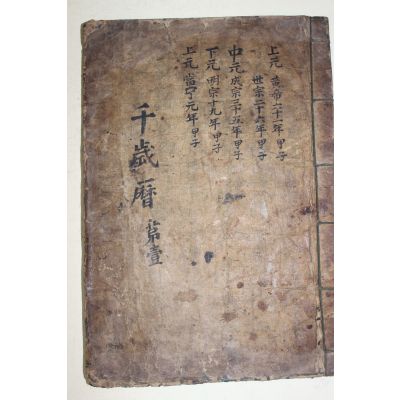 上元 黃帝六十一年甲子
世宗二十六年甲子
中元 成宗三十五年甲子
下元 明宗十九年甲子
上元 當宁元年甲子
千歲曆 第壹